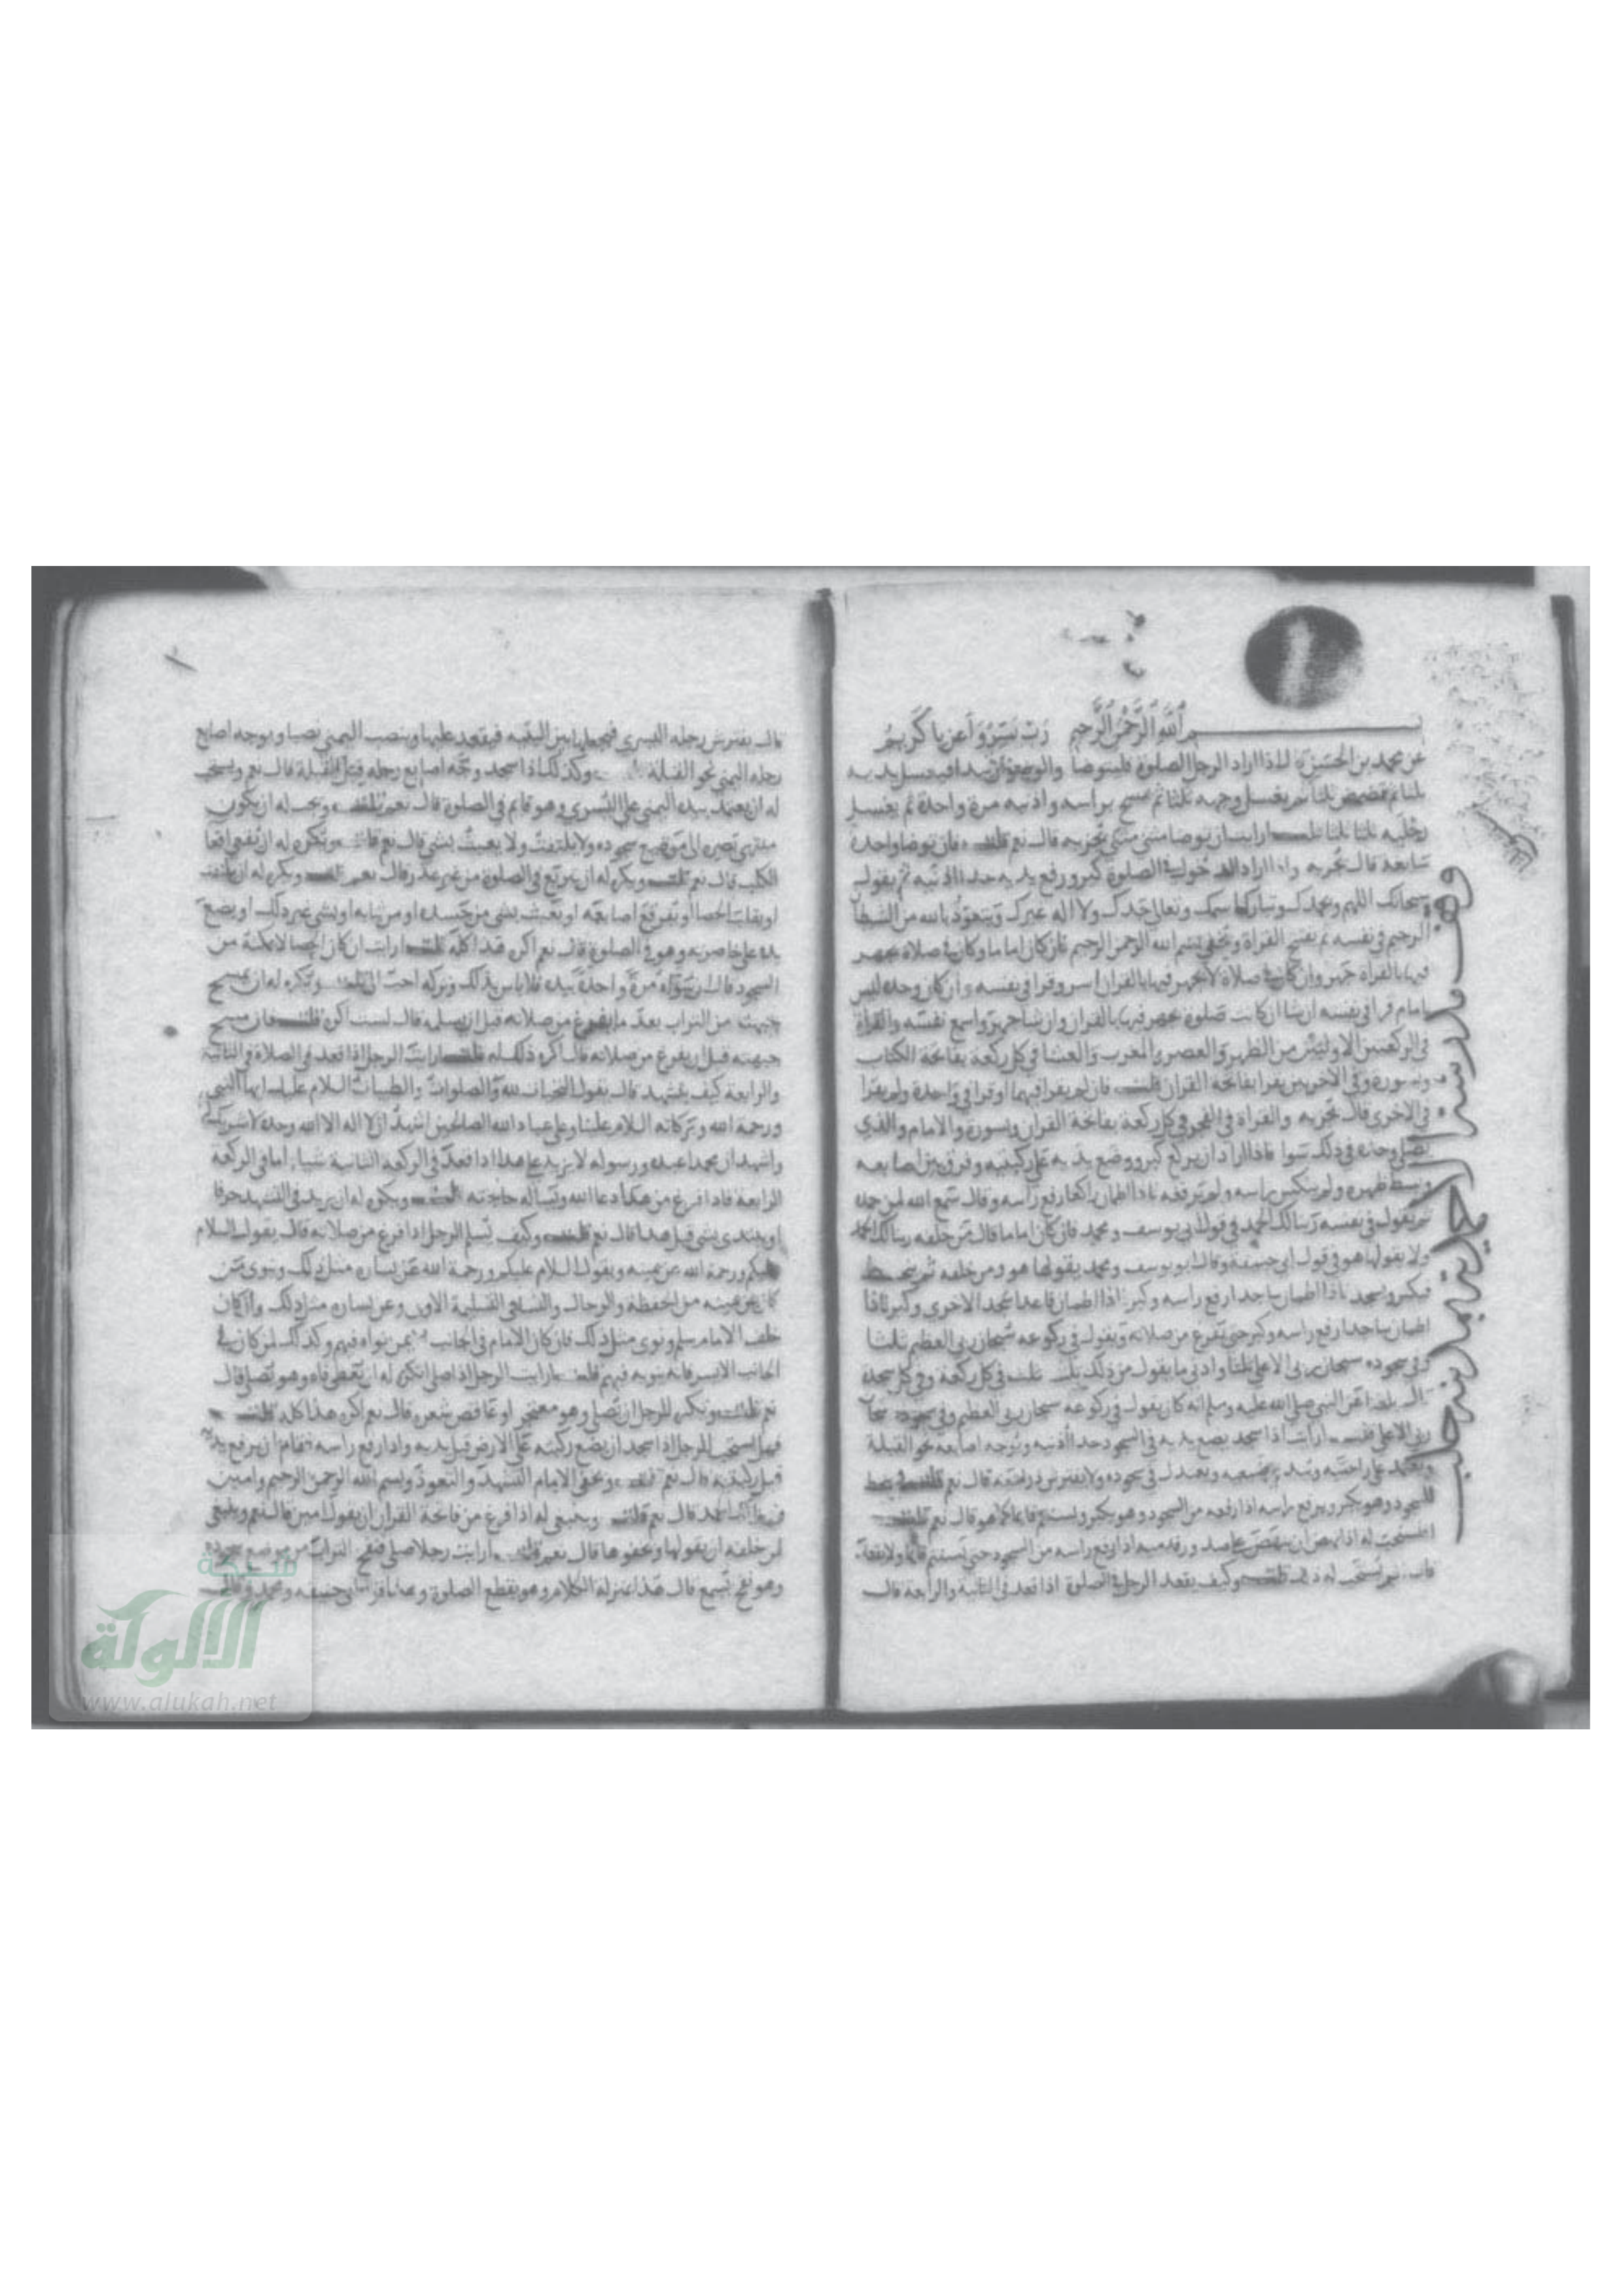 بسم الله الرحمن الرحيم رب يسر واعن يا كريم
عن محمد بن الحسن قال اذا اراد الرجل الصلوة فليتوضا والوضوء ان يبدا فيغسل يديه
ثلثا ثم يغسل وجهه ثلثا ثم يمسح براسه واذنيه مرة واحدة ثم يغسل
رجليه ثلثا ثلثا قلت ارايت ان توضا مثنى مثنى يجزيه قال نعم قلت فان توضا واحدة
سابغة قال يجزيه واذا اراد الدخول في الصلوة كبر ورفع يديه حذا اذنيه ثم يقول
سبحانك اللهم وبحمدك وتبارك اسمك وتعالى جدك ولا اله غيرك ويتعوذ بالله من الشيطان
الرجيم في نفسه ثم يفتتح القراة ويخفي بسم الله الرحمن الرحيم فان كان اماما وكان في صلاة يجهر
فيها بالقراة جهر وان كان في صلاة لا يجهر فيها بالقران اسر وقرا في نفسه وان كان وحده ليس
بامام قرا في نفسه ان شا ان كانت صلوة يجهر فيها بالقران وان شا جهر واسمع نفسه والقراة
في الركعتين الاوليين من الظهر والعصر والمغرب والعشا في كل ركعة بفاتحة الكتاب
وبسورة وفي الاخريين يقرا بفاتحة القران قلت فان لم يقرا فيهما او قرا في واحدة ولم يقرا
في الاخرى قال يجزيه والقراة في الفجر في كل ركعة بفاتحة القران وبسورة والامام والذي
يصلي وحده في ذلك سوا فاذا اراد ان يركع كبر ووضع يديه على ركبتيه وفرق بين اصابعه
وبسط ظهره ولم ينكس راسه ولم يرفعه فاذا اطمان راكعا رفع راسه وقال سمع الله لمن حمده
ثم يقول في نفسه ربنا لك الحمد في قول ابي يوسف ومحمد فان كان اماما قال من خلفه ربنا لك الحمد
ولا يقولها هو في قول ابي حنيفة وقال ابو يوسف ومحمد يقولها هو ومن خلفه ثم ينحط
فيكبر ويسجد فاذا اطمان ساجدا رفع راسه وكبر اذا اطمان قاعدا سجد الاخرى وكبر فاذا
اطمان ساجدا رفع راسه وكبر حتى يفرغ من صلاته ويقول في ركوعه سبحان ربي العظيم ثلثا
وفي سجوده سبحان ربي الاعلى ثلثا وادنى ما يقول من ذلك ثلث في كل ركعة وفي كل سجدة
قال بلغنا عن النبي صلى الله عليه وسلم انه كان يقول في ركوعه سبحان ربي العظيم وفي سجوده سبحان
ربي الاعلى قلت ارايت اذا سجد يضع يديه في السجود حذا اذنيه ويوجه اصابعه نحو القبلة
ويعتمد على راحتيه ويبدي ضبعيه ويعتدل في سجوده ولا يفترش ذراعيه قال نعم قلت
للسجود وهو يكبر ويرفع راسه اذا رفعه من السجود وهو يكبر ويستتم قايما كما هو قال نعم قلت
على صدور قدميه اذا رفع راسه من السجود حتى يستتم قايما ولا يقعد
قال نعم يستحب له ذلك قلت وكيف يقعد الرجل في الصلوة اذا قعد في الثانية والرابعة قال
وقف مدرسة الاحمدية بمدينة حلب
قال يفترش رجله اليسرى فيجعلها بين اليتيه فيقعد عليها وينصب اليمنى نصبا ويوجه اصابع
رجله اليمنى نحو القبلة وكذلك اذا سجد وجه اصابع رجله قبل القبلة قال نعم ويستحب
له ان يعتمد بيده اليمنى على اليسرى وهو قايم في الصلوة قال نعم قلت ويحب له ان يكون
منتهى بصره الى موضع سجوده ولا يلتفت ولا يعبث بشي قال نعم قلت ويكره له ان يقعي اقعا
الكلب قال نعم قلت ويكره له ان يتربع في الصلوة من غير عذر قال نعم قلت ويكره له ان يلتفت
او يقلب الحصا او يفرقع اصابعه او يعبث بشي من جسده او من ثيابه او بشي غير ذلك او يضع
يده على خاصرته وهو في الصلوة قال نعم اكره هذا كله قلت ارايت ان كان الحصا لا يمكنه من
السجود قال ان سواه مرة واحدة بيده فلا باس بذلك وتركه احب الي قلت وتكره له ان يمسح
جبهته من التراب بعد ما يفرغ من صلاته قبل ان يسلم قال لست اكره قلت فان مسح
جبهته قبل ان يفرغ من صلاته قال اكره ذلك له قلت ارايت الرجل اذا قعد في الصلاة في الثانية
والرابعة كيف يتشهد قال يقول التحيات لله والصلوات والطيبات السلام عليك ايها النبي
ورحمة الله وبركاته السلام علينا وعلى عباد الله الصالحين اشهد ان لا اله الا الله وحده لا شريك له
واشهد ان محمدا عبده ورسوله لا يزيد على هذا اذا قعد في الركعة الثانية شيا اما في الركعة
الرابعة فاذا فرغ من هذا دعا الله وساله حاجته قلت ويكره له ان يزيد في التشهد حرفا
او يبتدي بشي قبل هذا قال نعم قلت وكيف يسلم الرجل اذا فرغ من صلاته قال يقول السلام
عليكم ورحمة الله عن يمينه ويقول السلام عليكم ورحمة الله عن يساره مثل ذلك وينوي من
كان عن يمينه من الحفظة والرجال والنسا في التسليمة الاولى وعن يساره مثل ذلك وان كان
خلف الامام سلم ونوى مثل ذلك فان كان الامام في الجانب الايمن نواه فيهم وكذلك ان كان في
الجانب الايسر فانه ينويه فيهم قلت ارايت الرجل اذا صلى اتكره له ان يغطي فاه وهو يصلي قال
نعم قلت وتكره للرجل ان يصلي وهو معتجر او عاقص شعره قال نعم اكره هذا كله قلت
فهل يستحب للرجل اذا سجد ان يضع ركبتيه على الارض قبل يديه واذا رفع راسه فقام ان يرفع يديه
قبل ركبتيه قال نعم قلت ويخفي الامام التشهد والتعوذ وبسم الله الرحمن الرحيم وامين
قال نعم قلت وينبغي له اذا فرغ من فاتحة القران ان يقول امين قال نعم وينبغي
لمن خلفه ان يقولها ويخفوها قال نعم قلت ارايت رجلا صلى فنفخ التراب من موضع سجوده
وهو نفخ يسمع قال هذا بمنزلة الكلام وهو يقطع الصلوة وهذا قول ابي حنيفة ومحمد
شبكة
الألوكة
www.alukah.net